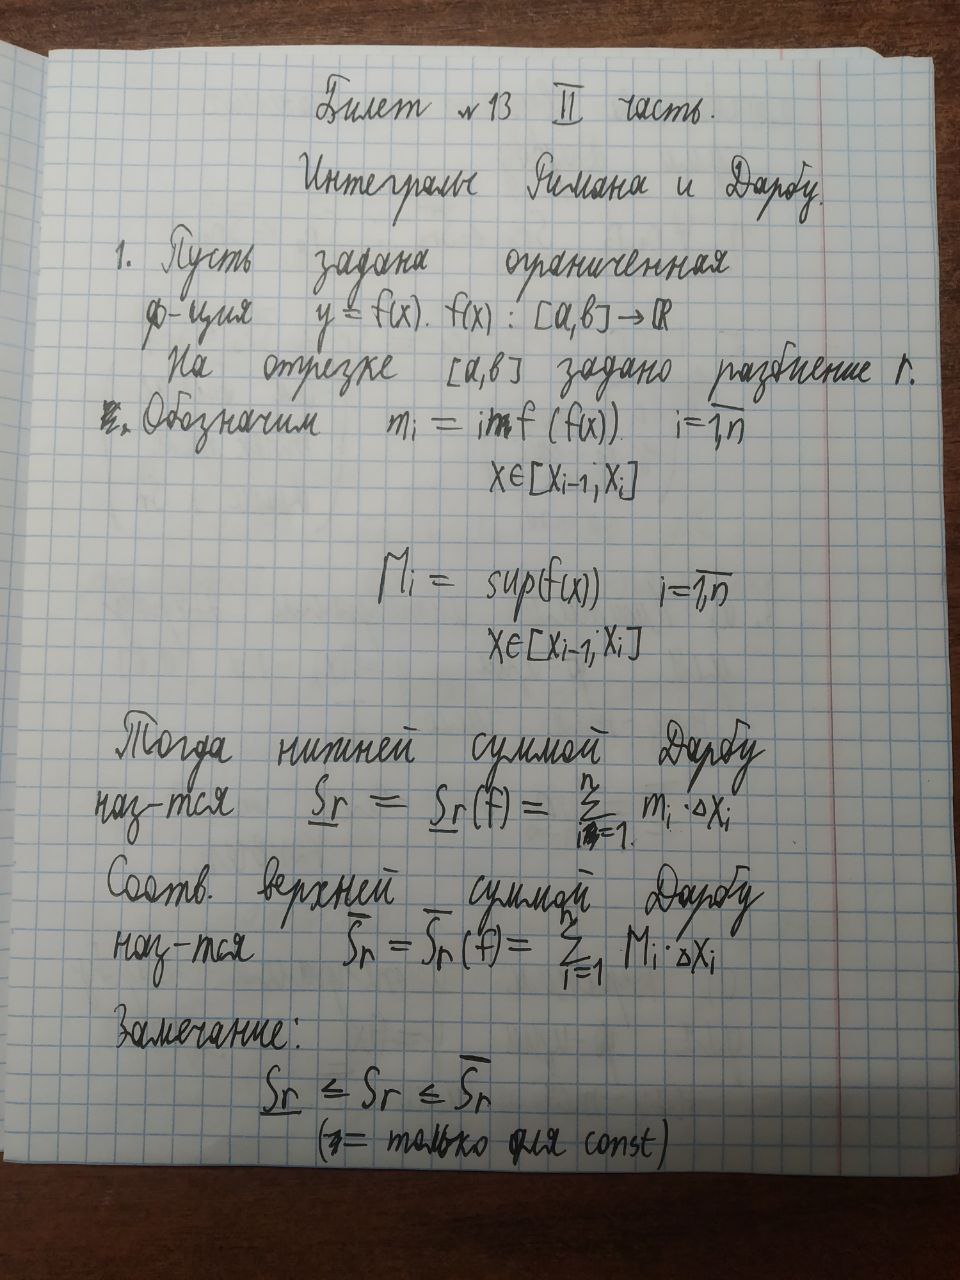 Билет №13 II часть.
Интегралы Римана и Дарбу.
1. Пусть задана ограниченная
ф-ция y = f(x). f(x) : [a,b] → ℝ
На отрезке [a,b] задано разбиение r.
Обозначим mᵢ = inf (f(x)) i=1,n
x∈[xᵢ₋₁; xᵢ]
Mᵢ = sup(f(x)) i=1,n
x∈[xᵢ₋₁; xᵢ]
Тогда нижней суммой Дарбу
наз-тся S̲r = S̲r(f) = Σ mᵢ·Δxᵢ n i=1.
Соотв. верхней суммой Дарбу
наз-тся S̅r = S̅r(f) = Σ Mᵢ·Δxᵢ n i=1
Замечание:
S̲r ≤ Sr ≤ S̅r
(= только для const)